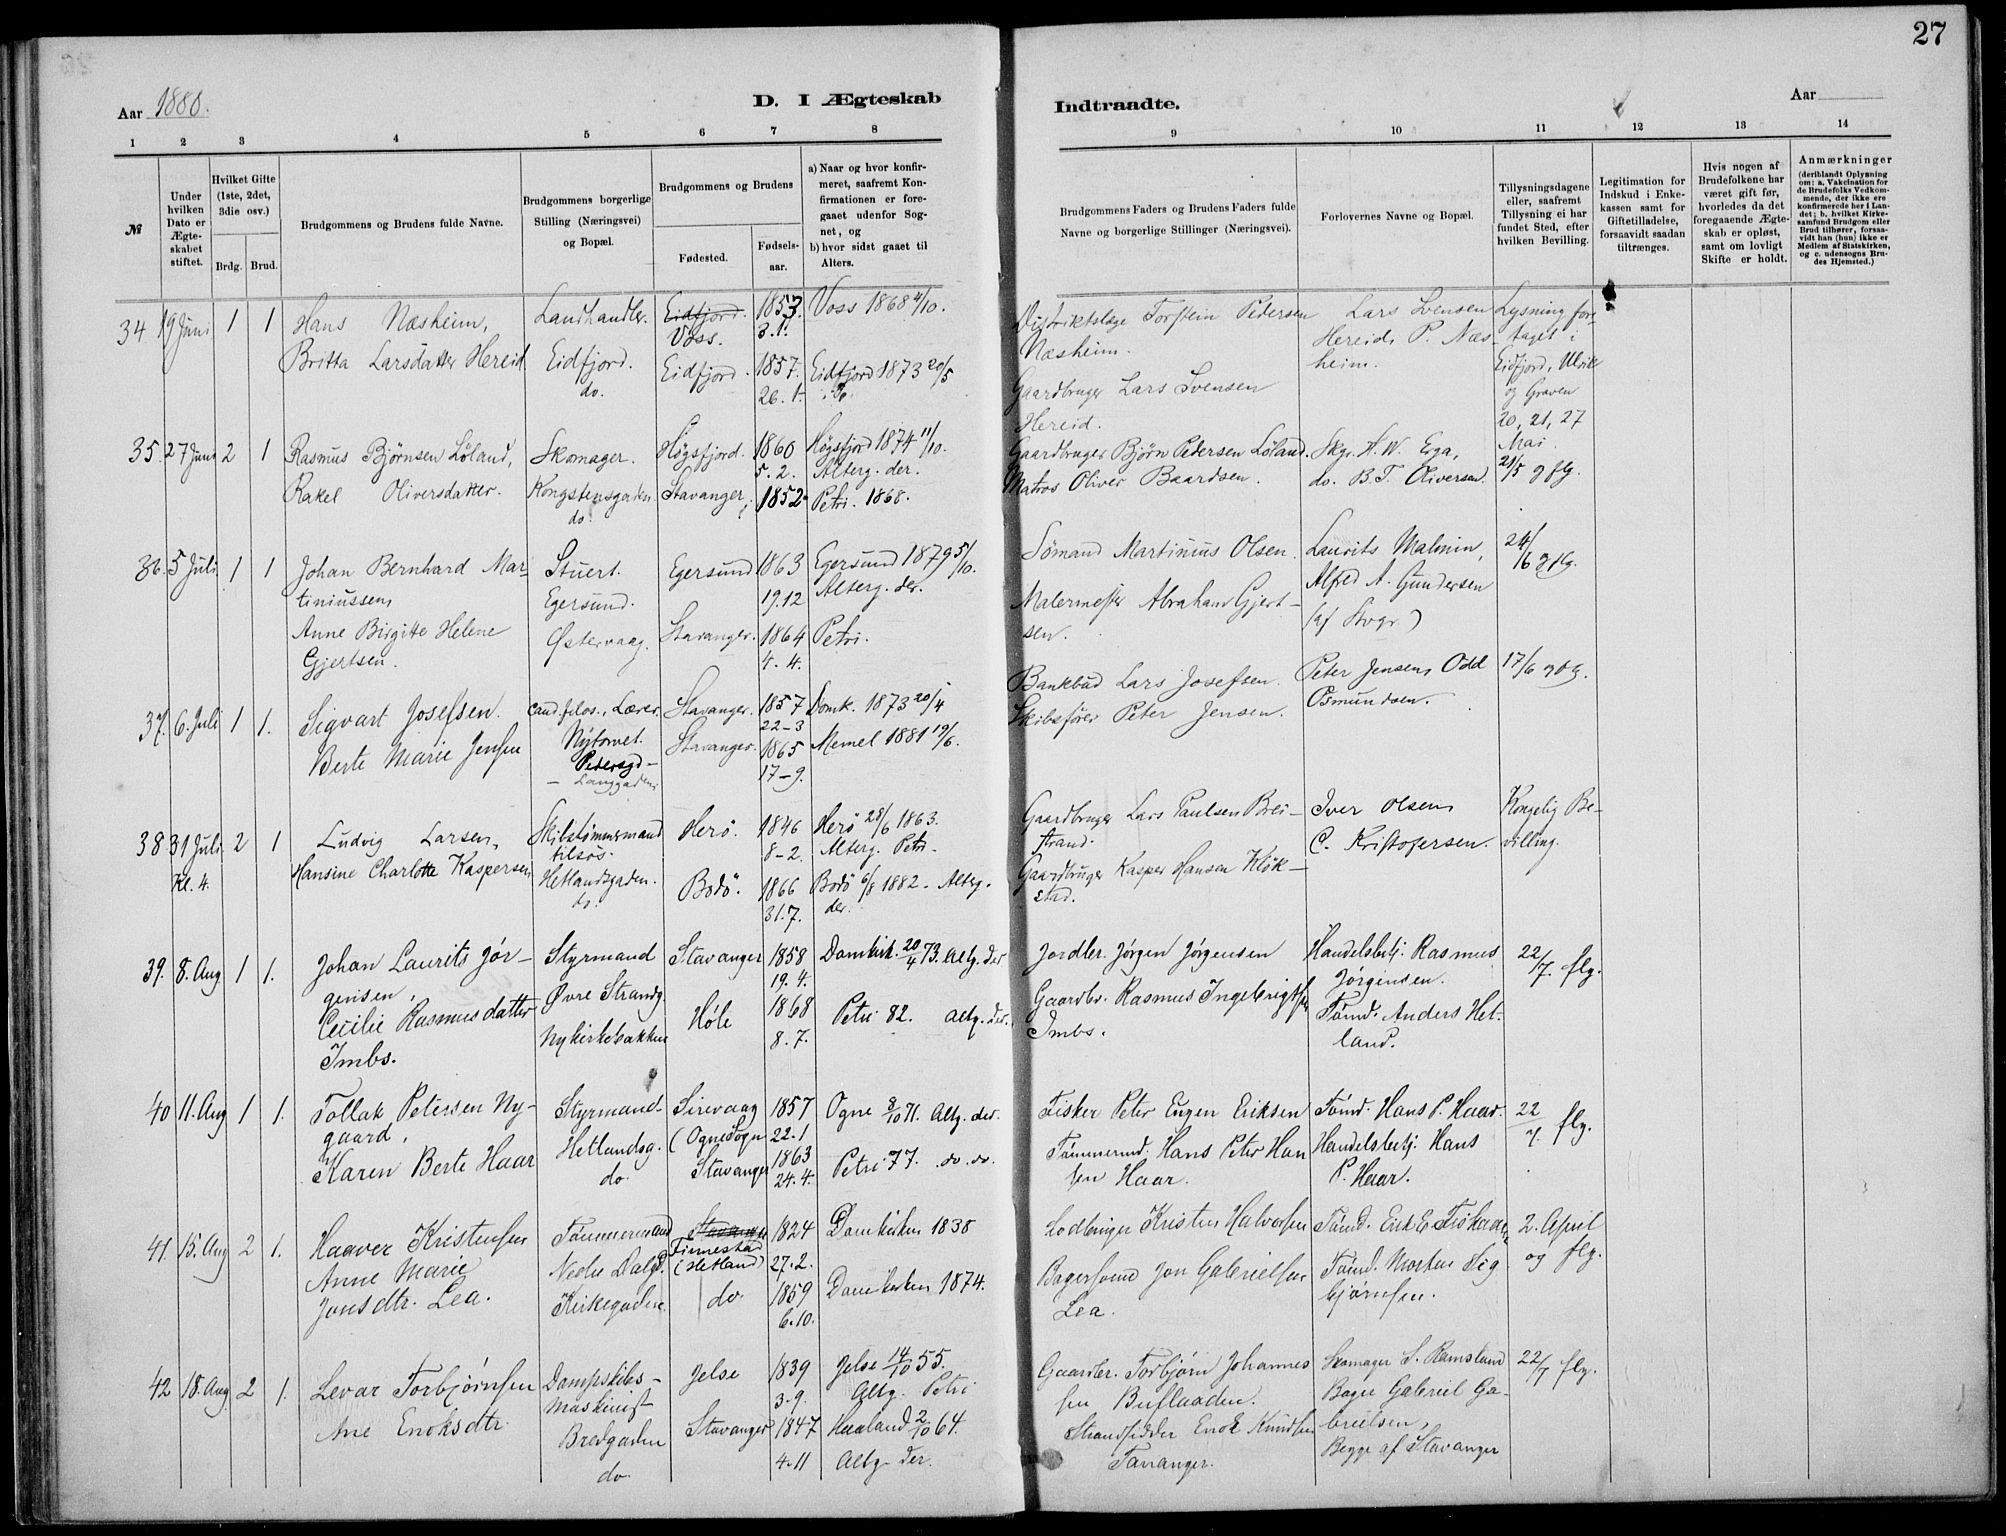 27
Aar 1880.
D. I Ægteskab
Indtraadte.
Aar
1 2 3 4 5 6 7 8 9 10 11 12 13 14
№
Under hvilken Dato er Ægteskabet stiftet.
Hvilket Gifte (1ste, 2det, 3die osv.)
Brdg. Brud.
Brudgommens og Brudens fulde Navne.
Brudgommens borgerlige Stilling (Næringsvei) og Bopæl.
Brudgommens og Brudens
Fødested.
Fødselsaar.
a) Naar og hvor konfirmeret, saafremt Konfirmationen er foregaaet udenfor Sognet, og
b) hvor sidst gaaet til Alters.
Brudgommens Faders og Brudens Faders fulde Navne og borgerlige Stillinger (Næringsvei).
Forlovernes Navne og Bopæl.
Tillysningsdagene eller, saafremt Tillysning ei har fundet Sted, efter hvilken Bevilling.
Legitimation for Indskud i Enkekassen samt for Giftetilladelse, forsaavidt saadan tiltrænges.
Hvis nogen af Brudefolkene har været gift før, hvorledes da det foregaaende Ægteskab er opløst, samt om lovligt Skifte er holdt.
Anmærkninger
(deriblandt Oplysning om: a. Vakcination for de Brudefolks Vedkommende, der ikke ere konfirmerede her i Landet; b. hvilket Kirkesamfund Brudgom eller Brud tilhører, forsaavidt han (hun) ikke er Medlem af Statskirken, og c. udensogns Brudes Hjemsted.)
34 19 Juni 1 1 Hans Næsheim, Landhandler. Eidfjord. Voss. 1853 3.1. Voss 1868 4/10.
Distriktslæge Torstein Pedersen Næsheim. Lars Svensen Hereid, P. Næsheim. Lysning foretaget i Eidfjord, Ulvik og Graven 20, 21, 27 Mai
Britta Larsdatter Hereid Eidfjord. do. Eidfjord. 1857. 26.1. Eidfjord 1873 20/5
Gaardbruger Lars Svensen Hereid.
35. 27 Juni 2 1 Rasmus Bjørnsen Løland, Skomager. Høgsfjord. 1860 5.2. Høgsfjord 1874 11/10. Alterg. der.
Gaardbruger Bjørn Pedersen Løland. Skgr. A. W. Erga, 21/5 og flg.
Rakel Oliversdatter. Kongstensgaden. do. Stavanger, 1852 Petri. 1868.
Matros Oliver Baardsen. do. B. T. Oliversen.
36. 5 Juli 1 1 Johan Bernhard Martiniussen, Stuert. Egersund. Egersund 1863 19.12 Egersund 1879 5/10. Alterg. der.
Sømand Martinius Olsen. Laurits Malmin, 24/6 og flg.
Anne Birgitte Helene Gjertsen. Østervaag. Stavanger. 1864 4.4. Petri.
Malermester Abraham Gjertsen. Alfred A. Gundersen (af Stvgr.)
37. 6. Juli 1 1. Sigvart Josefsen. cand. filos., Lærer. Nytorvet. Stavanger. 1857 22-3 Domk. 1873 20/4
Bankbud Lars Josefsen. Peter Jensen, Odd Osmundsen. 17/6 og flg.
Berte Marie Jensen Pedersgd— — Langgaden. Stavanger. 1865 17-9. Memel 1881 19/6.
Skibsfører Peter Jensen.
38 31 Juli Kl. 4. 2 1 Ludvig Larsen, Skibstømmermand tilsøs. Herø. 1846 8-2. Herø 28/6 1863. Alterg. Petri.
Gaardbruger Lars Paulsen Breistrand. Iver Olsen Kongelig Bevilling.
Hansine Charlotte Kaspersen Hetlandsgaden. do. Bodø. 1866 31.7. Bodø 6/8 1882. Alterg. der.
Gaardbruger Kasper Hansen Kløkstad. C. Kristofersen.
39. 8. Aug 1 1. Johan Laurits Jørgensen, Styrmand Øvre Strandg. Stavanger 1858 19.4. Domkirk. 20/4 73. Altg. der
Jordbr. Jørgen Jørgensen Handelsbetj. Rasmus Jørgensen. 22/7. flg.
Cecilie Rasmusdatter Imbs. Nykirkebakken Høle 1868 8.7. Petri 82. altg. der.
Gaardbr. Rasmus Ingebrigtsen Imbs. Tømd. Anders Hetland.
40 11. Aug 1 1. Tollak Petersen Nygaard, Styrmand Hetlandsg. Sirevaag (Ogne Sogn 1857 22.1 Ogne 8/10 71. Altg. der.
Fisker Peter Eugen Eriksen Tømd. Hans P. Haar. 22/7. flg.
Karen Berte Haar do. Stavanger 1863 24.4. Petri 77. do. do.
Tømmermd. Hans Peter Hansen Haar. Handelsbetj. Hans P. Haar.
41. 15. Aug 2 1. Haaver Kristensen Tømmermand Nedre Dalgd. Finnestad (Hetland) 1824 27.2. Domkirken 1838
Lodbringer Kristen Halvorsen Tømd. Erik E. 2. April og flg.
Anne Marie Jonsdtr. Lea. Kirkegaden. do. 1859 6.10. Domkirken 1874.
Bagersvend Jon Gabrielsen Lea. Tømd. Morten Sigbjørnsen.
42 18. Aug 2 1. Levar Torbjørnsen Dampskibsmaskinist Bredgaden Jelse 1839 3.9. Jelse 14/10 55. Altg. Petri
Gaardbr. Torbjørn Johannessen Skomager S. Ramsland 22/7 flg.
Ane Enoksdtr. do. Stavanger 1847 4.11 Haaland 2/10 64. Altg. der.
Strandsidder Enok Knudsen Tananger. Bager Gabriel Gabrielsen, Begge af Stavanger